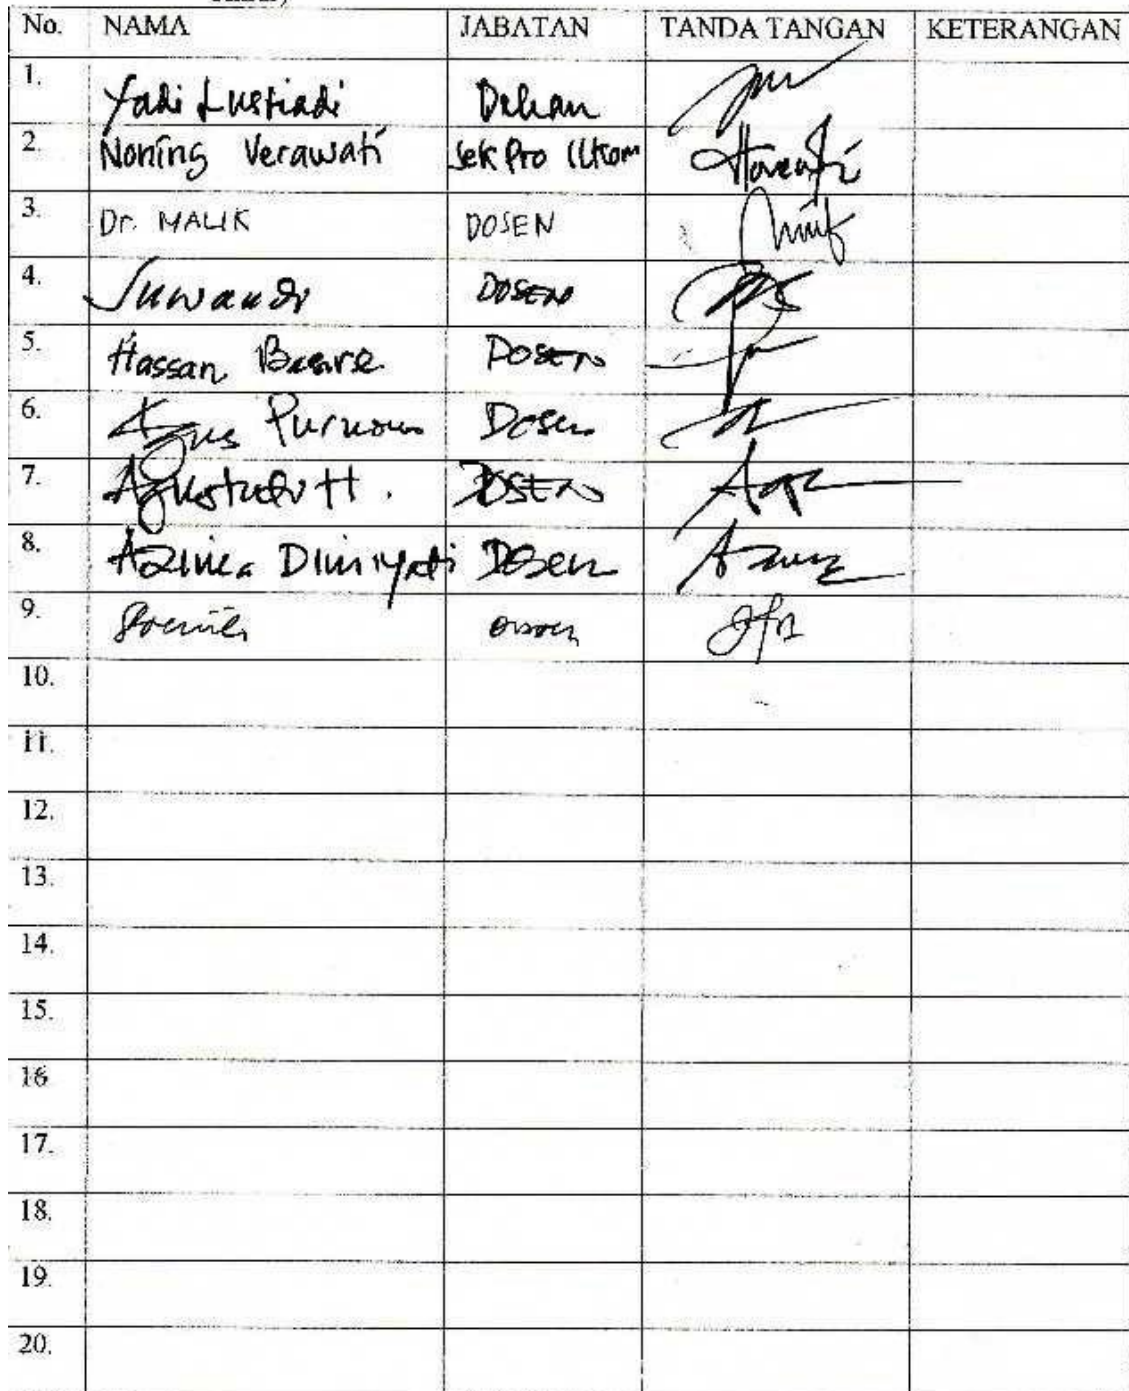 No. NAMA JABATAN TANDA TANGAN KETERANGAN
1. Yadi Lustiadi Dekan
2. Noning Verawati Sek Pro Ilkom
3. Dr. MALIK DOSEN
4. Suwandi DOSEN
5. Hassan Basre DOSEN
6. Agus Purnomo Dosen
7. DOSEN
8. Azima Dimiyati Dosen
9.
10.
11.
12.
13.
14.
15.
16
17.
18.
19.
20.